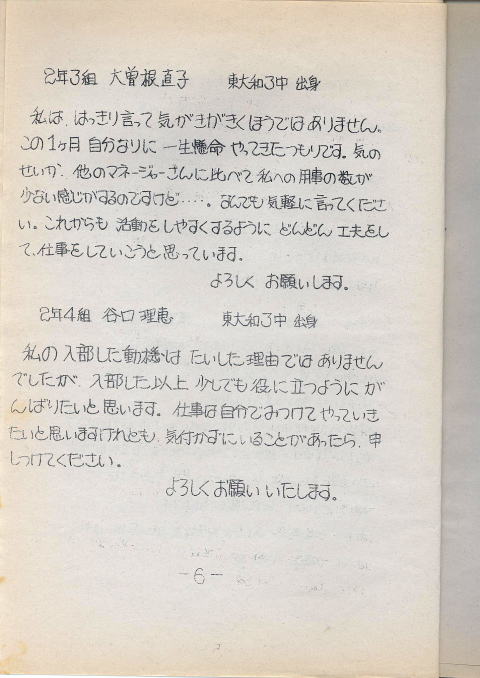 2年3組 大曽根直子 東大和3中 出身
私は、はっきり言って気がきがきくほうではありません。
この1ヶ月 自分なりに 一生懸命 やってきたつもりです。気の
せいか、他のマネージャーさんに比べて私への用事の数が
少ない感じがするのですけど……。なんでも気軽に言ってくださ
い。これからも 活動をしやすくするように どんどん 工夫をし
て、仕事をしていこうと思っています。
よろしく お願いします。
2年4組 谷口理恵 東大和3中 出身
私の入部した動機は たいした理由ではありません
でしたが、入部した以上 少しでも役に立つように が
んばりたいと思います。仕事は自分でみつけてやっていき
たいと思いますけれども、気付かずにいることがあったら、申
しつけてください。
よろしくお願いいたします。
-6-